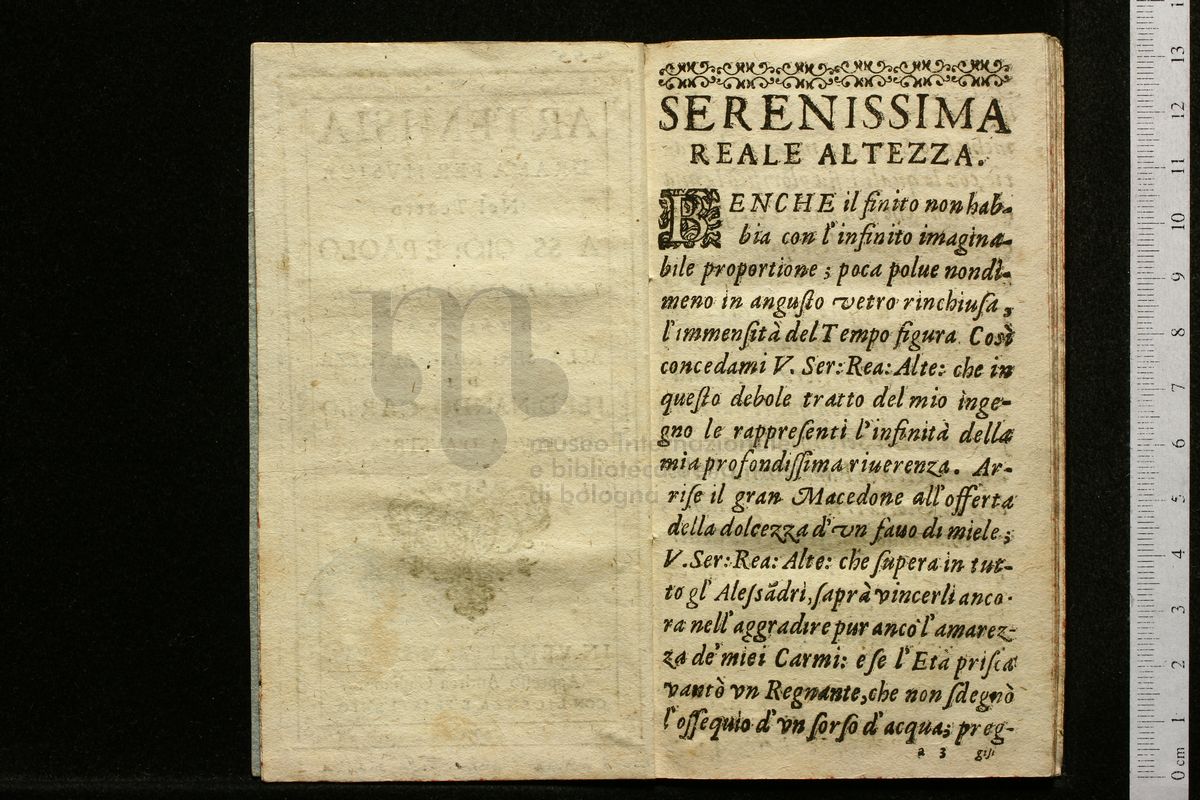 SERENISSIMA
REALE ALTEZZA.
BENCHE il finito non hab-
bia con l'infinito imagina-
bile proportione; poca polue nondi-
meno in angusto vetro rinchiusa,
l'immensità del Tempo figura. Così
concedami V. Ser: Rea: Alte: che in
questo debole tratto del mio inge-
gno le rappresenti l'infinità della
mia profondissima riuerenza. Ar-
rise il gran Macedone all'offerta
della dolcezza d'vn fauo di miele;
V. Ser: Rea: Alte: che supera in tut-
to gl' Alessãdri, saprà vincerli anco-
ra nell'aggradire pur anco l'amarez-
za de' miei Carmi: e se l'Età prisca
vantò vn Regnante, che non sdegnò
l'ossequio d'vn sorso d'acqua; preg-
a 3 gisi
museo internazionale
e biblioteca
di bologna
0 cm 1 2 3 4 5 6 7 8 9 10 11 12 13